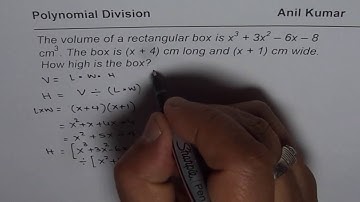 Polynomial Division Anil Kumar
The volume of a rectangular box is x³ + 3x² – 6x – 8
cm³. The box is (x + 4) cm long and (x + 1) cm wide.
How high is the box?
V = L · W · H
H = V ÷ (L·W)
L×W = (x+4)(x+1)
= x²+x+4x+4
= x²+5x+4
H = [x³+3x²-6x
÷ [x²+